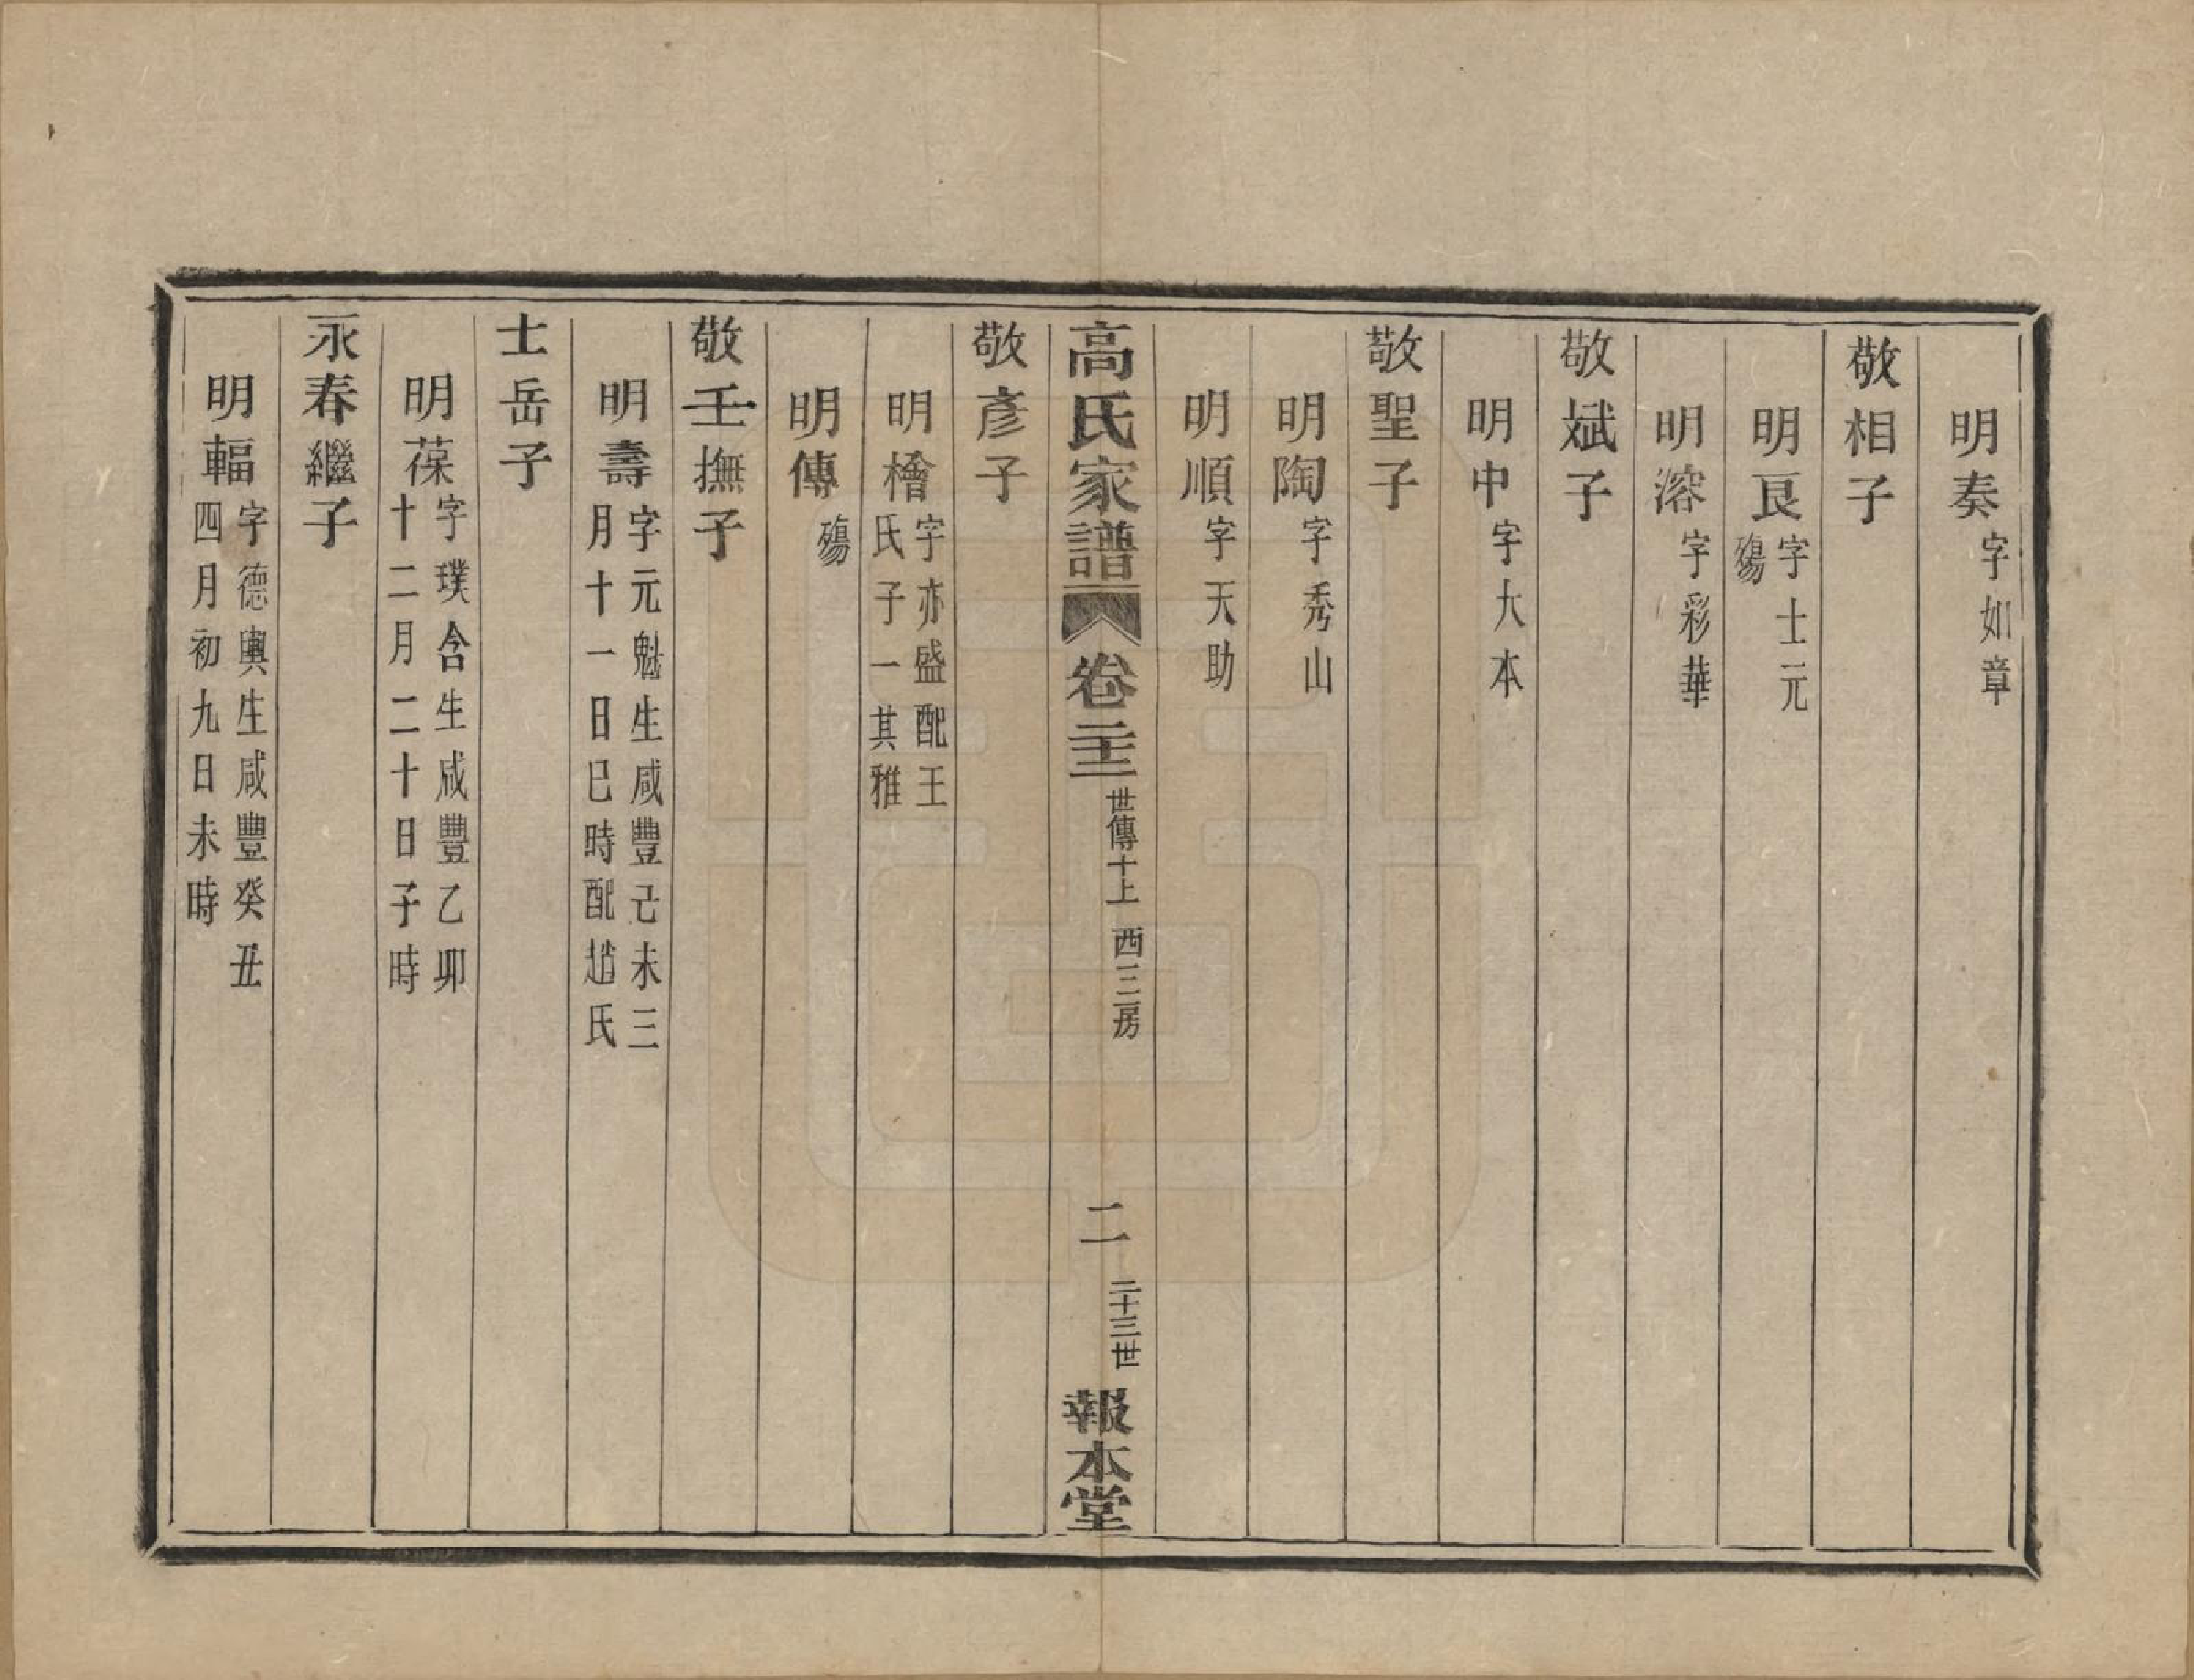 明奏字如章
敬相子
明良字士元殤
明溶字彩華
敬斌子
明中字大本
敬聖子
明陶字秀山
明順字天助
高氏家譜 卷二十三 世傳十上 西三房 二 二十三世 報本堂
敬彥子
明檜字亦盛配王氏子一其雅
明傳殤
敬壬撫子
明壽字元魁生咸豐己未三月十一日巳時配趙氏
士岳子
明葆字璞含生咸豐乙卯十二月二十日子時
永春繼子
明輻字德輿生咸豐癸丑四月初九日未時